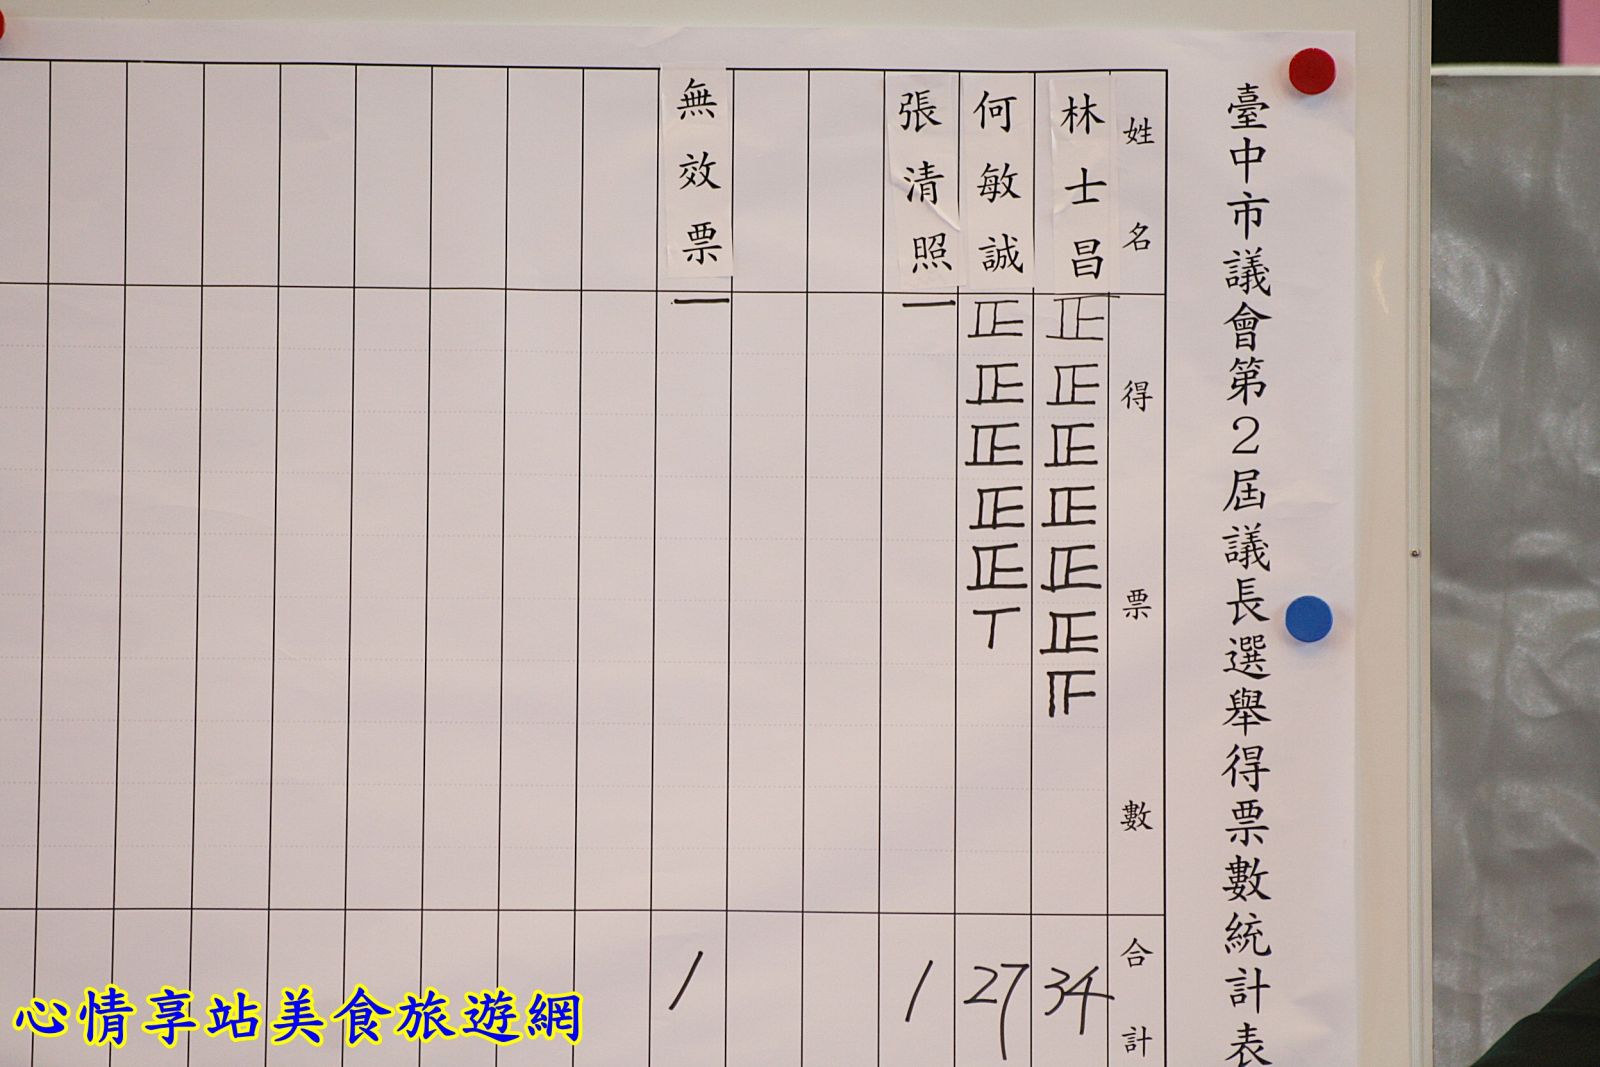 臺中市議會第2屆議長選舉得票數統計表
姓名
得票數
合計
林士昌
正正正正正正𣥂
34
何敏誠
正正正正正丅
27
張清照
一
1
無效票
一
1
心情享站美食旅遊網